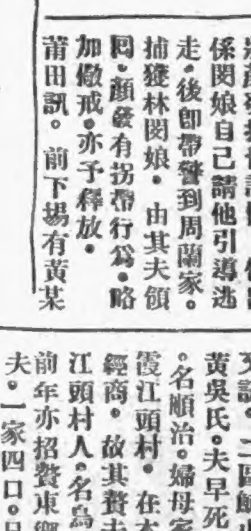 係閔娘自己請他引導逃
走。後即帶警到周蘭家。
捕獲林閔娘。由其夫領
回。顏 有拐帶行爲。略
加儆戒。亦予釋放。
莆田訊。前下場有黃某
黃吳氏。夫早死
。名順治。婦母家
霞江頭村。在
經商。故其贅夫
江頭村人。名鳥
前年亦招贅東鄉
夫。一家四口。